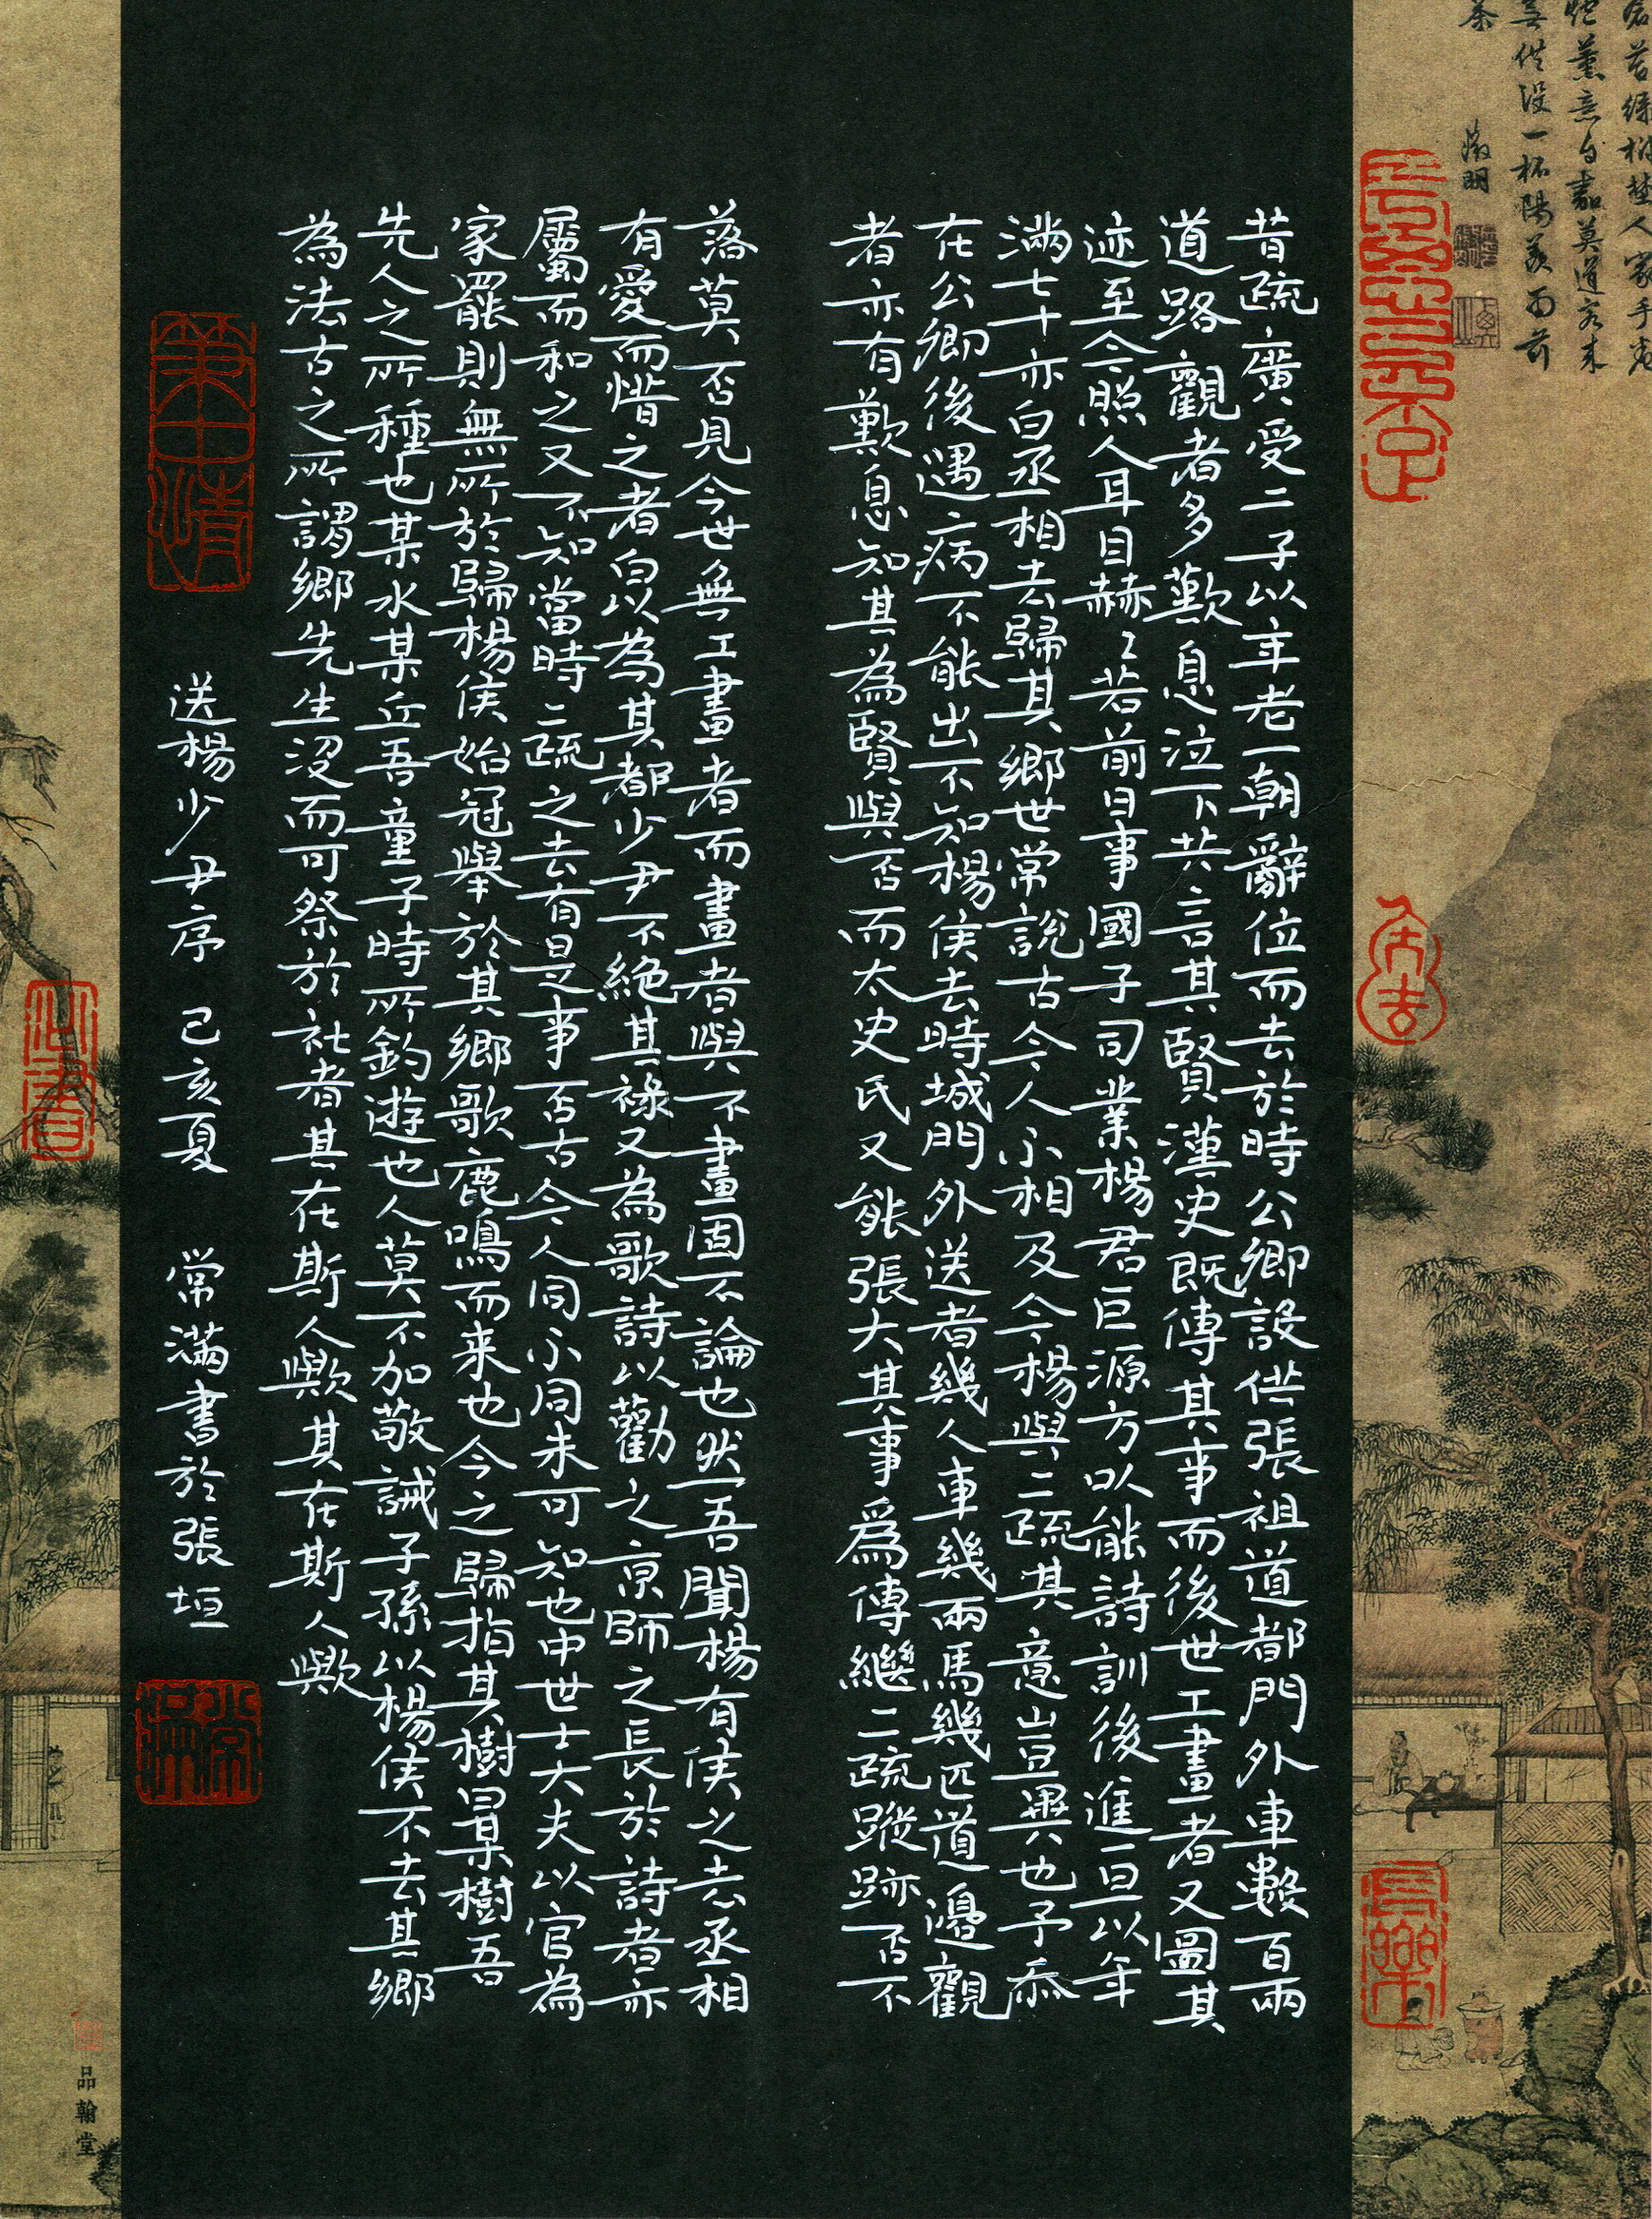 人家手
意自嘉莫道客来
無供設一杯陽羨雨前
茶
徵明
昔疏廣受二子以年老一朝辭位而去於時公卿設供張祖道都門外車數百兩
道路觀者多歎息泣下共言其賢漢史既傳其事而後世工畫者又圖其
迹至今照人耳目赫〻若前日事國子司業楊君巨源方以能詩訓後進一旦以年
滿七十亦白丞相去歸其鄉世常說古今人不相及今楊與二疏其意豈異也予忝
在公卿後遇病不能出不知楊侯去時城門外送者幾人車幾兩馬幾匹道邊觀
者亦有歎息知其為賢與否而太史氏又能張大其事爲傳繼二疏蹤跡否不
落莫否見今世無工畫者而畫者與不畫固不論也然吾聞楊有侯之去丞相
有愛而惜之者白以為其都少尹不絕其祿又為歌詩以勸之京師之長於詩者亦
屬而和之又不知當時二疏之去有是事否古今人同不同未可知也中世士大夫以官為
家罷則無所於歸楊侯始冠舉於其鄉歌鹿鳴而来也今之歸指其樹曰某樹吾
先人之所種也某水某丘吾童子時所釣遊也人莫不加敬誡子孫以楊侯不去其鄉
為法古之所謂鄉先生沒而可祭於社者其在斯人歟其在斯人歟
送楊少尹序 己亥夏 常滿書於張垣
筆中情
常滿
長樂
品翰堂